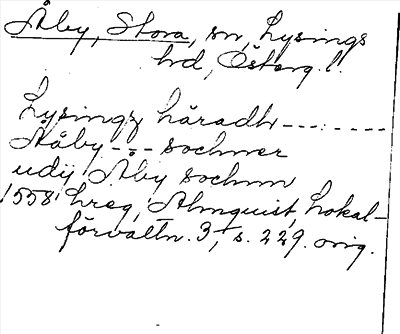 Åby, Stora, sn, Lysings
hd, Österg. l.
Lysingz häradh --------
Ååby --- sochner
udij Åby sochnn
1558 Lreg, Almquist, Lokal-
förvaltn. 3, s. 229. orig.